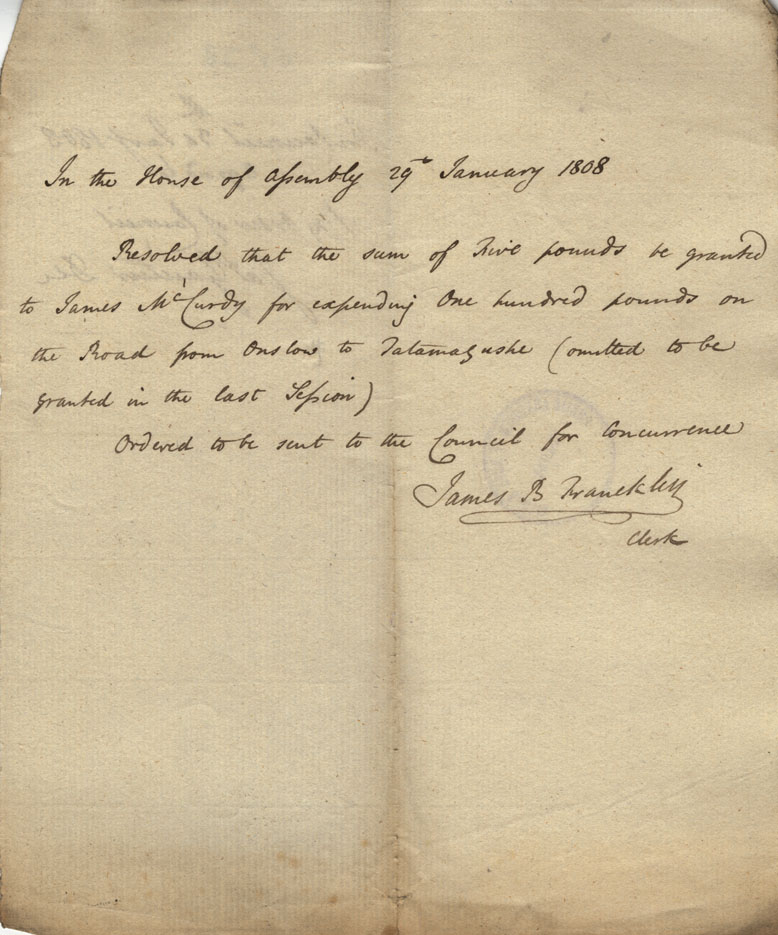 In the House of Assembly 29th January 1808
Resolved that the sum of Five pounds be granted
to James McCurdy for expending One hundred pounds on
the Road from Onslow to Tatamagushe (omitted to be
granted in the last Session)
Ordered to be sent to the Council for Concurrence
James B Francklin
Clerk